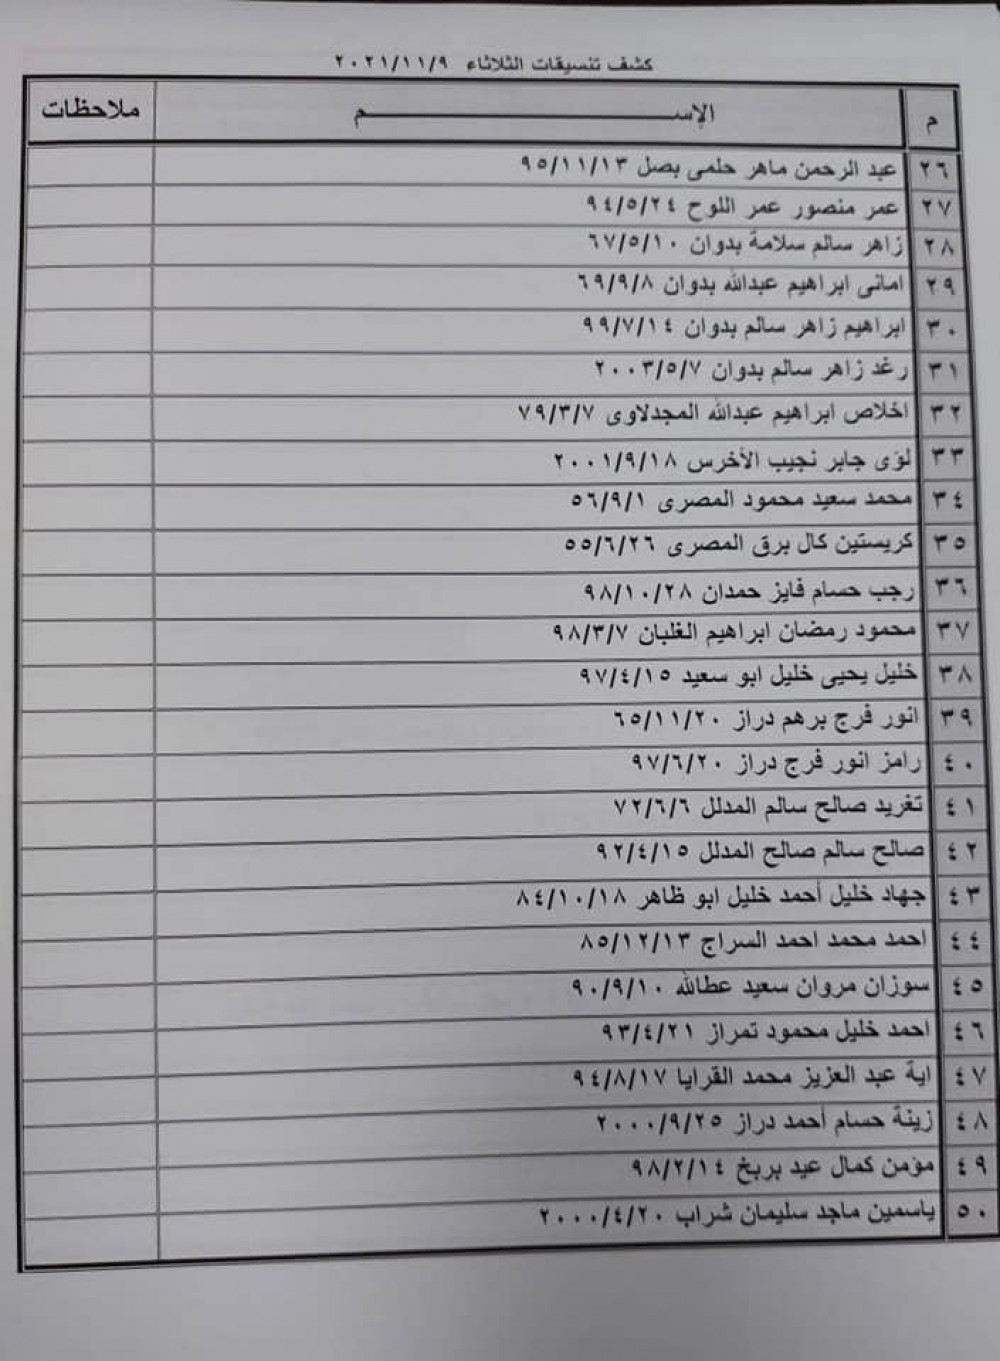 كشف تنسيقات الثلاثاء ٢٠٢١/١١/٩
م الإســـــــــــــــــم ملاحظات
٢٦ عبد الرحمن ماهر حلمى بصل ٩٥/١١/١٣
٢٧ عمر منصور عمر اللوح ٩٤/٥/٢٤
٢٨ زاهر سالم سلامة بدوان ٦٧/٥/١٠
٢٩ امانى ابراهيم عبدالله بدوان ٦٩/٩/٨
٣٠ ابراهيم زاهر سالم بدوان ٩٩/٧/١٤
٣١ رغد زاهر سالم بدوان ٢٠٠٣/٥/٧
٣٢ اخلاص ابراهيم عبدالله المجدلاوى ٧٩/٣/٧
٣٣ لؤى جابر نجيب الأخرس ٢٠٠١/٩/١٨
٣٤ محمد سعيد محمود المصرى ٥٦/٩/١
٣٥ كريستين كال برق المصرى ٥٥/٦/٢٦
٣٦ رجب حسام فايز حمدان ٩٨/١٠/٢٨
٣٧ محمود رمضان ابراهيم الغلبان ٩٨/٣/٧
٣٨ خليل يحيى خليل ابو سعيد ٩٧/٤/١٥
٣٩ انور فرج برهم دراز ٦٥/١١/٢٠
٤٠ رامز انور فرج دراز ٩٧/٦/٢٠
٤١ تغريد صالح سالم المدلل ٧٢/٦/٦
٤٢ صالح سالم صالح المدلل ٩٢/٤/١٥
٤٣ جهاد خليل أحمد خليل ابو ظاهر ٨٤/١٠/١٨
٤٤ احمد محمد احمد السراج ٨٥/١٢/١٣
٤٥ سوزان مروان سعيد عطالله ٩٠/٩/١٠
٤٦ احمد خليل محمود تمراز ٩٣/٤/٢١
٤٧ اية عبد العزيز محمد القرايا ٩٤/٨/١٧
٤٨ زينة حسام أحمد دراز ٢٠٠٠/٩/٢٥
٤٩ مؤمن كمال عيد بربخ ٩٨/٢/١٤
٥٠ ياسمين ماجد سليمان شراب ٢٠٠٠/٤/٢٠